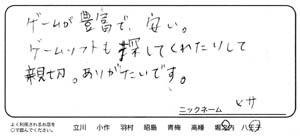 ゲームが豊富で、安い。
ゲームソフトも探してくれたりして
親切。ありがたいです。
ニックネーム ヒサ
よく利用されるお店を
○で囲んでください。
立川 小作 羽村 昭島 青梅 高幡 堀之内 八王子